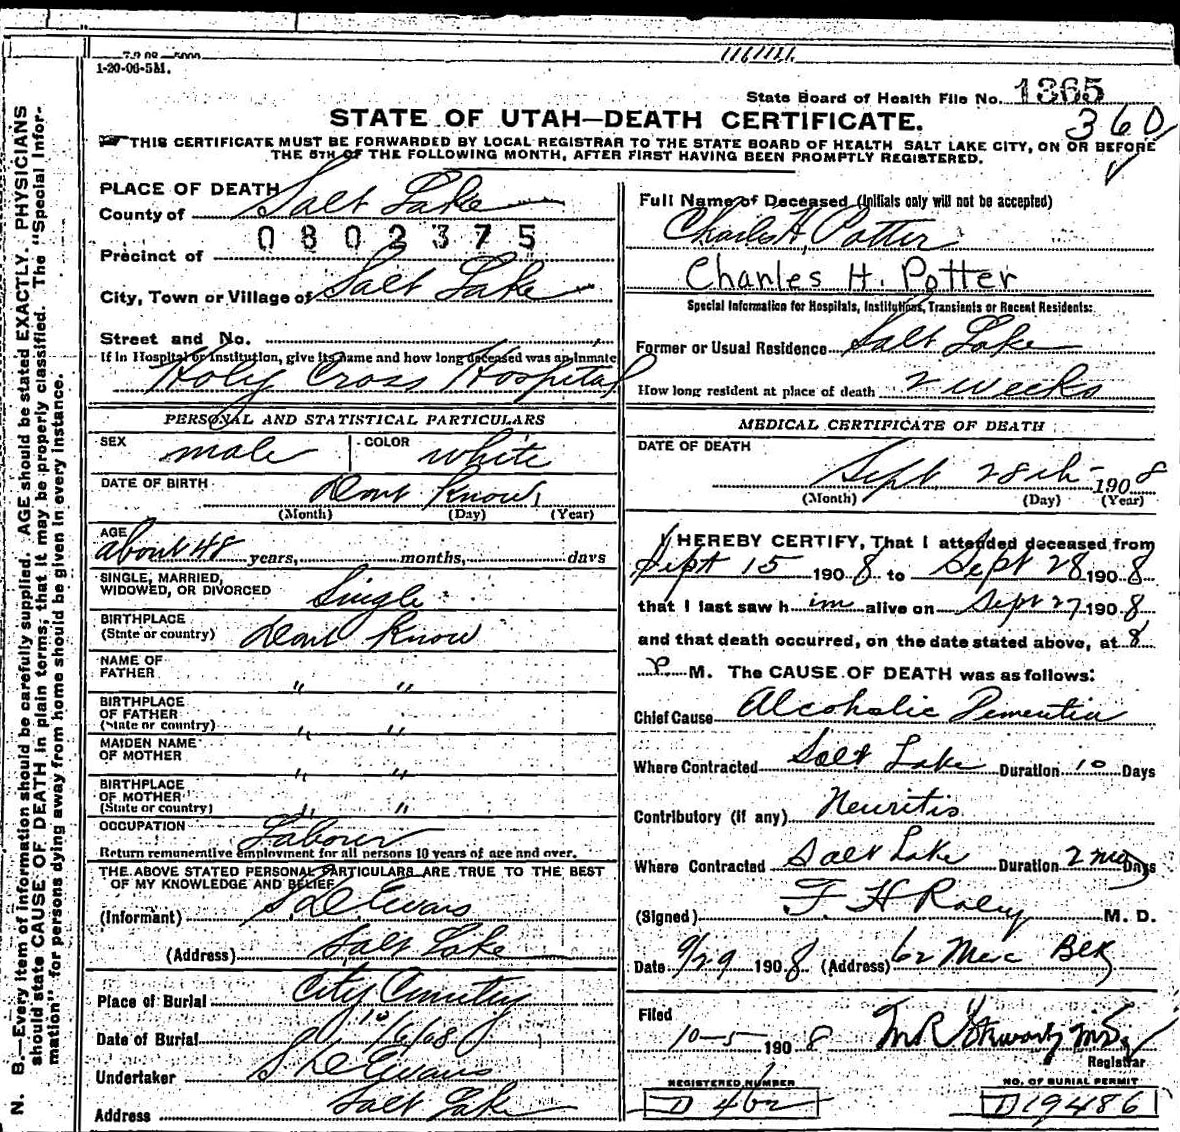 1-20-06-5M.
State Board of Health File No. 1365
360
STATE OF UTAH—DEATH CERTIFICATE.
THIS CERTIFICATE MUST BE FORWARDED BY LOCAL REGISTRAR TO THE STATE BOARD OF HEALTH SALT LAKE CITY, ON OR BEFORE
THE 5TH OF THE FOLLOWING MONTH, AFTER FIRST HAVING BEEN PROMPTLY REGISTERED.
N. B.—Every item of information should be carefully supplied. AGE should be stated EXACTLY. PHYSICIANS
should state CAUSE OF DEATH in plain terms, that it may be properly classified. The "Special Infor-
mation" for persons dying away from home should be given in every instance.
PLACE OF DEATH
County of Salt Lake
0802375
Precinct of
City, Town or Village of Salt Lake
Street and No.
If in Hospital or Institution, give its name and how long deceased was an inmate
Holy Cross Hospital
PERSONAL AND STATISTICAL PARTICULARS
SEX male COLOR white
DATE OF BIRTH Dont Know
(Month) (Day) (Year)
AGE about 48 years, months, days
SINGLE, MARRIED,
WIDOWED, OR DIVORCED Single
BIRTHPLACE
(State or country) Dont Know
NAME OF
FATHER " "
BIRTHPLACE
OF FATHER
(State or country) " "
MAIDEN NAME
OF MOTHER " "
BIRTHPLACE
OF MOTHER
(State or country) " "
OCCUPATION Labour
Return remunerative employment for all persons 10 years of age and over.
THE ABOVE STATED PERSONAL PARTICULARS ARE TRUE TO THE BEST
OF MY KNOWLEDGE AND BELIEF
(Informant) Evans
(Address) Salt Lake
Place of Burial City Cemetery
Date of Burial 10/6/08
Undertaker Evans
Address Salt Lake
Full Name of Deceased (Initials only will not be accepted)
Charles H. Potter
Charles H. Potter
Special Information for Hospitals, Institutions, Transients or Recent Residents:
Former or Usual Residence Salt Lake
How long resident at place of death 2 weeks
MEDICAL CERTIFICATE OF DEATH
DATE OF DEATH
Sept 28th 1908
(Month) (Day) (Year)
I HEREBY CERTIFY, That I attended deceased from
Sept 15 1908 to Sept 28 1908
that I last saw him alive on Sept 27 1908
and that death occurred, on the date stated above, at 8
P. M. The CAUSE OF DEATH was as follows:
Chief Cause Alcoholic Dementia
Where Contracted Salt Lake Duration 10 Days
Contributory (if any) Neuritis
Where Contracted Salt Lake Duration 2 mo Days
(Signed) F. H. M. D.
Date 9/29 1908 (Address) 62 Merc Blk
Filed
10-5- 1908 M R Stewart M.D.
Registrar
REGISTERED NUMBER
D 462
NO. OF BURIAL PERMIT
D19486